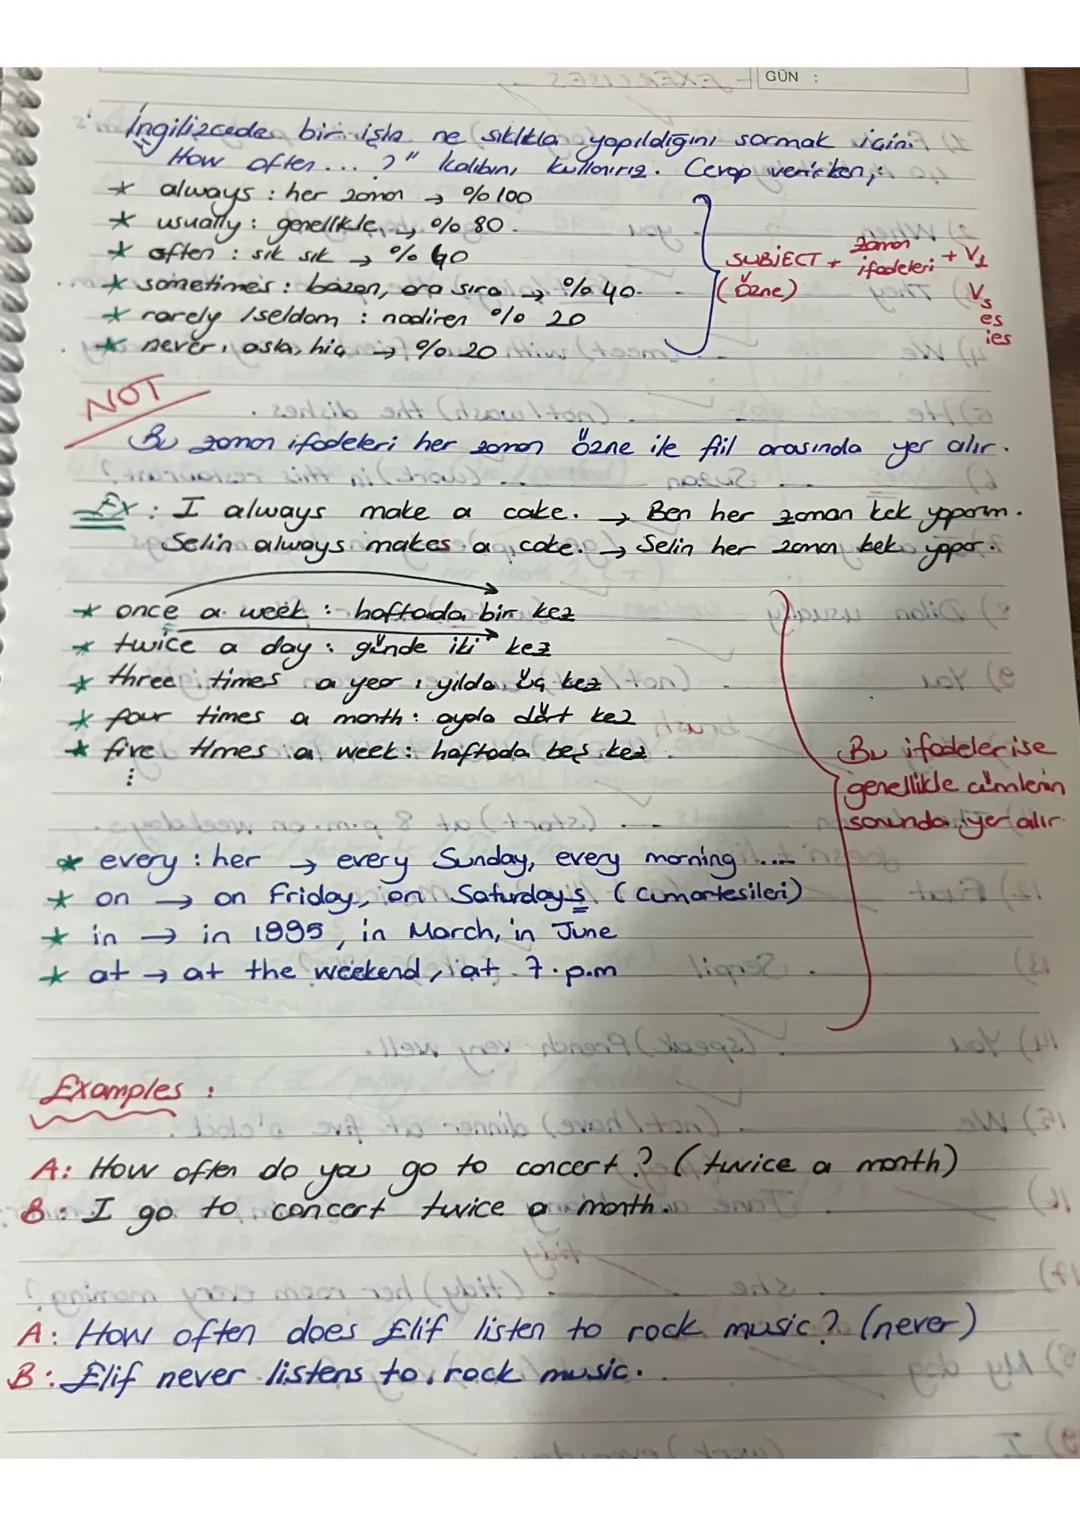 GÜN :
İngilizcede bir işin ne sıklıkla yapıldığını sormak için
"How often... ?" kalıbını kullanırız. Cevap verirken;
* always : her zaman → %100
* usually : genellikle → %80
* often : sık sık → %60
* sometimes : bazen, ara sıra → %40
* rarely / seldom : nadiren %20
* never : asla, hiç → %20
SUBJECT + zaman ifadeleri + V1
(özne)
Vs
es
ies
NOT
Bu zaman ifadeleri her zaman özne ile fiil arasında yer alır.
Ex : I always make a cake. → Ben her zaman kek yaparım.
Selin always makes a cake. → Selin her zaman kek yapar.
* once a week : haftada bir kez
* twice a day : günde iki kez
* three times a year : yılda üç kez
* four times a month : ayda dört kez
* five times a week : haftada beş kez
⋮
Bu ifadeler ise
genellikle cümlenin
sonunda yer alır.
* every : her → every Sunday, every morning ....
* on → on Friday, on Saturdays (cumartesileri)
* in → in 1995, in March, in June
* at → at the weekend, at 7.p.m
Examples :
A: How often do you go to concert? (twice a month)
B: I go to concert twice a month.
A: How often does Elif listen to rock music? (never)
B: Elif never listens to rock music.